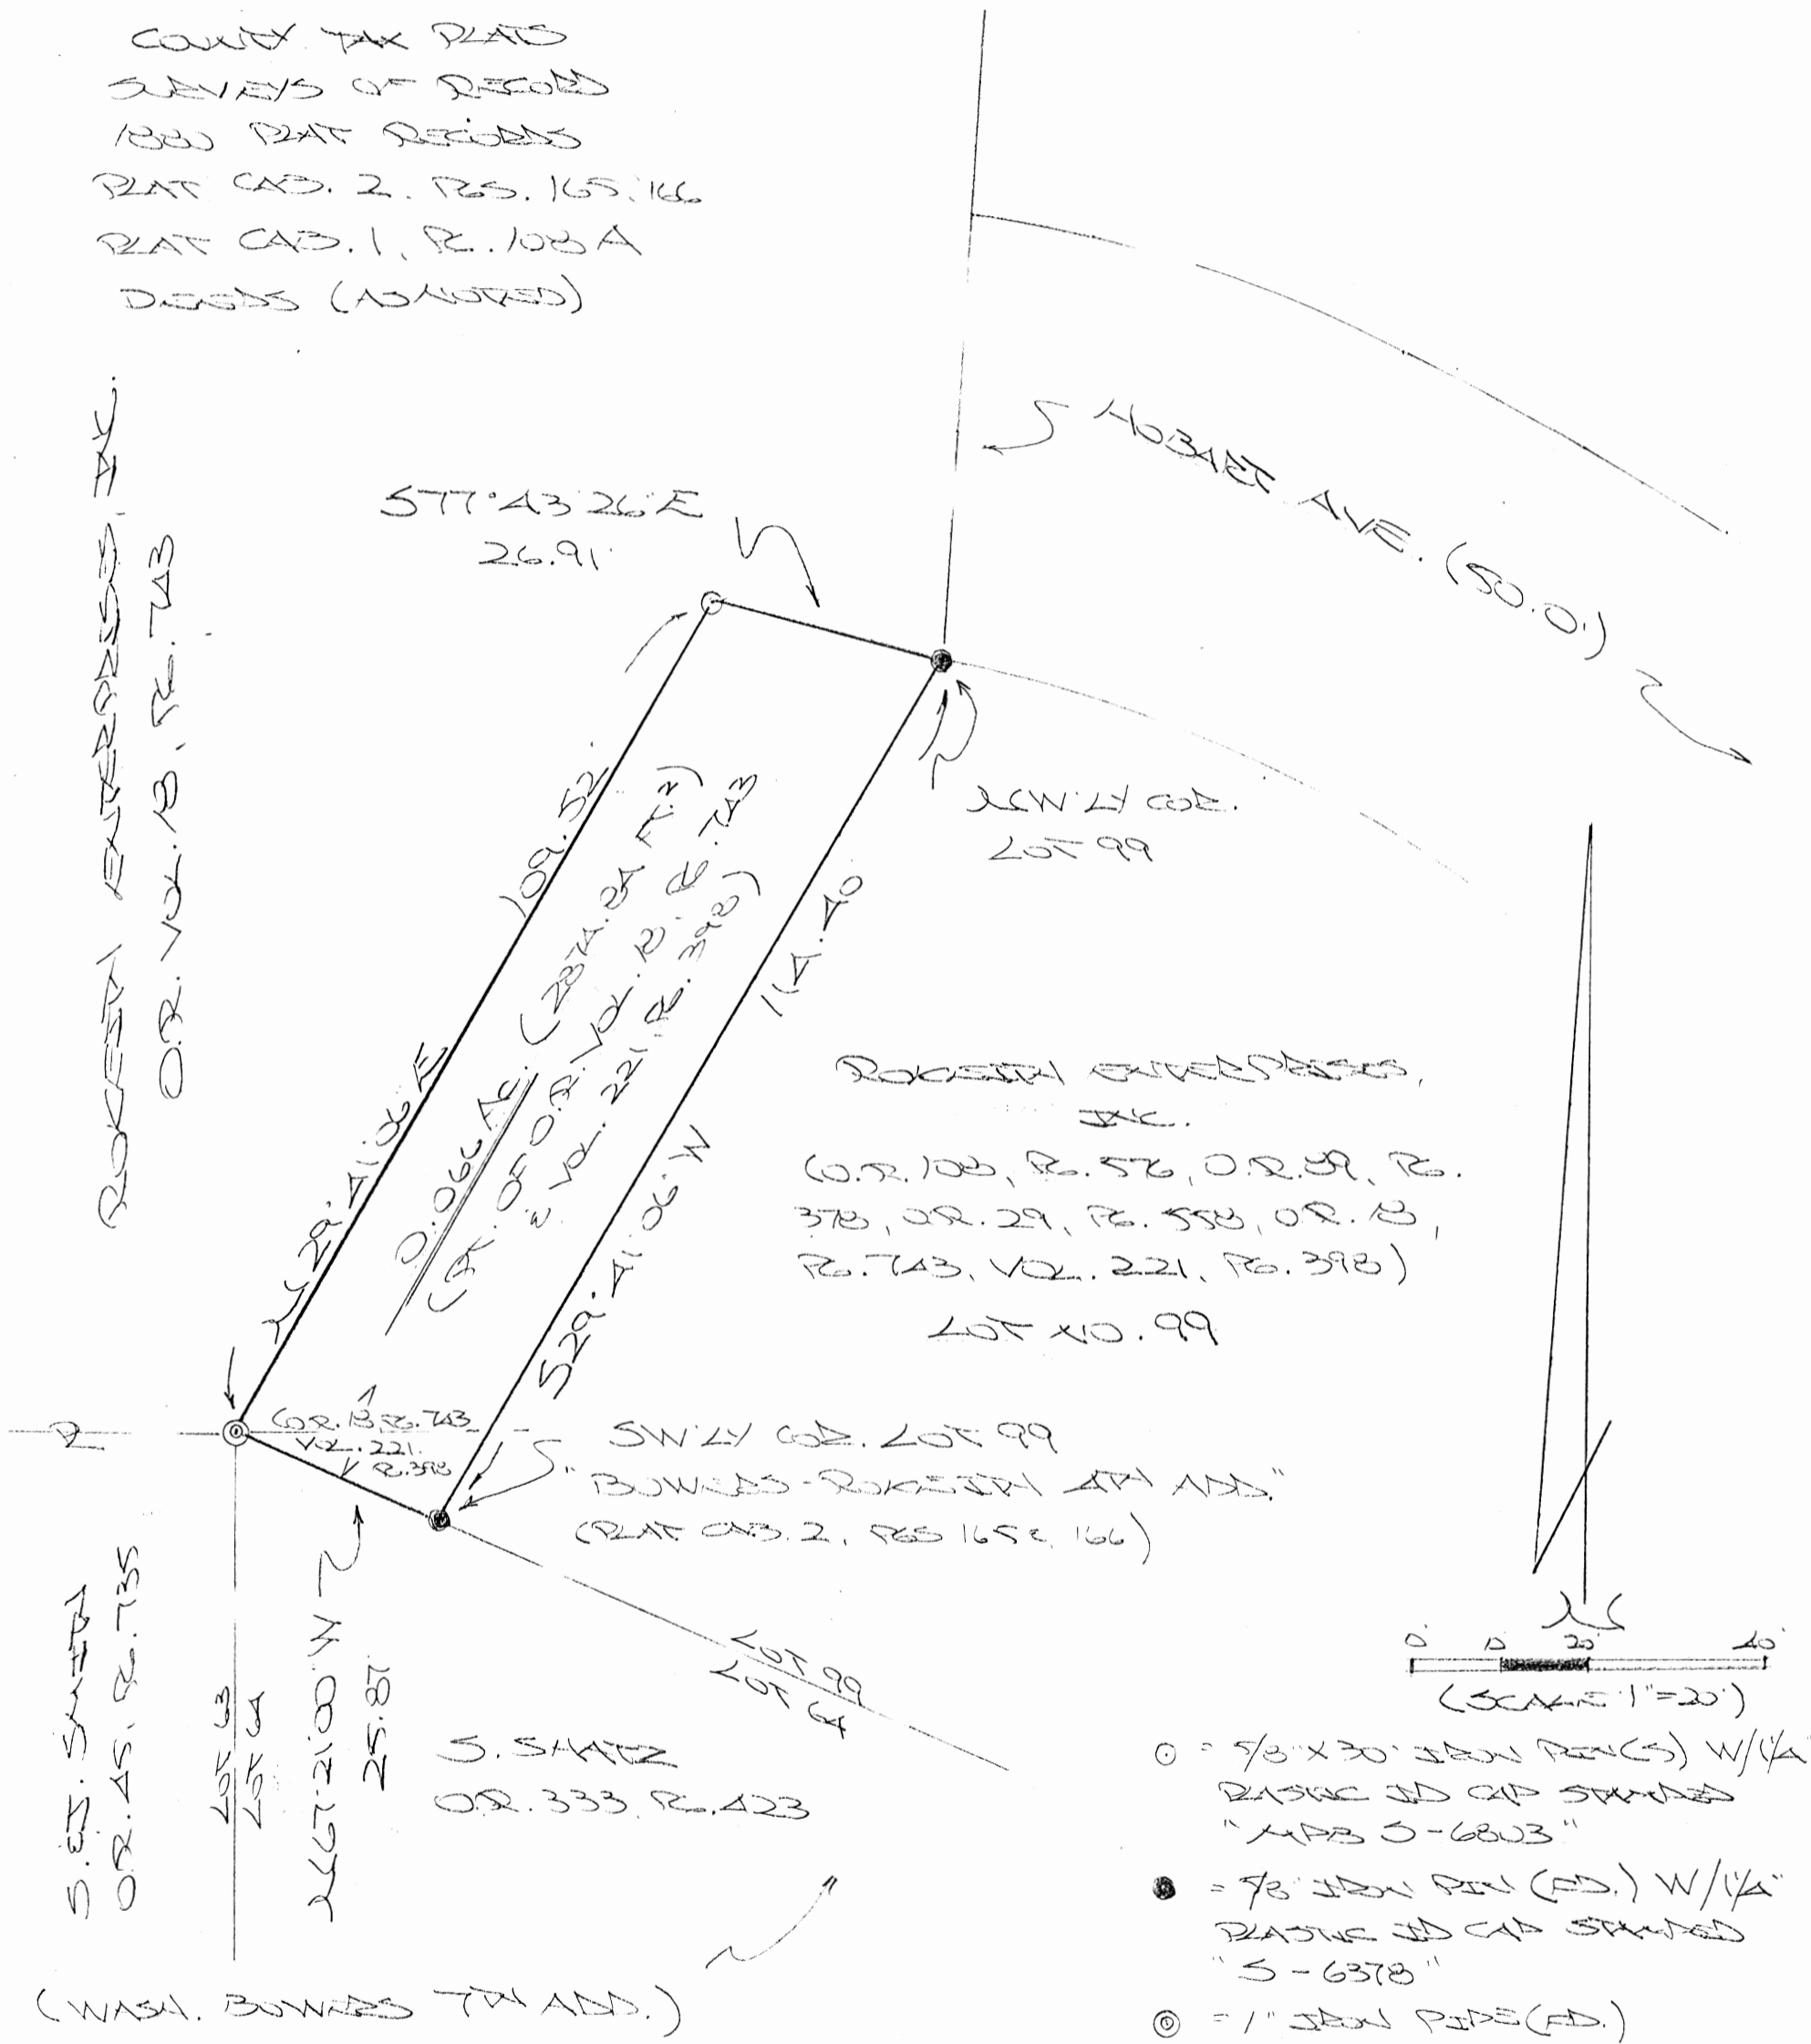 COUNTY TAX PLATS
SURVEYS OF RECORD
1880 PLAT RECORDS
PLAT CAB. 2, PGS. 165, 166
PLAT CAB. 1, PG. 108 A
DEEDS (AS NOTED)
ROKEITH ENTERPRISES, INC.
O.R. VOL. 18, PG. 743
S77° 43' 26" E
26.91'
HOBART AVE. (50.0')
NW'LY COR.
LOT 99
109.52'
N29° 41' 06" E
0.066 AC. (2874.84 FT.2)
(PT. OF O.R. VOL. 18, PG. 743
& VOL. 221, PG. 398)
114.40'
S29° 41' 06" W
ROKEITH ENTERPRISES,
INC.
(O.R. 108, PG. 576, O.R. 89, PG.
378, O.R. 29, PG. 558, O.R. 18,
PG. 743, VOL. 221, PG. 398)
LOT NO. 99
O.R. 18, PG. 743
VOL. 221,
PG. 398
SW'LY COR. LOT 99
"BOWERS-ROKEITH 4TH ADD."
(PLAT CAB. 2, PGS 165 & 166)
S. & J. SMITH
O.R. 45, PG. 735
LOT 63
LOT 64
N67° 21' 00" W
25.87'
LOT 99
LOT 64
S. SHATZ
O.R. 333, PG. 423
(WASH. BOWERS 7TH ADD.)
N
0' 10 20' 40'
(SCALE 1"=20')
= 5/8" X 30" IRON PIN(S) W/1 1/4"
PLASTIC ID CAP STAMPED
"MPB S-6803"
= 5/8" IRON PIN (FD.) W/1 1/4"
PLASTIC ID CAP STAMPED
"S-6378"
= 1" IRON PIPE (FD.)